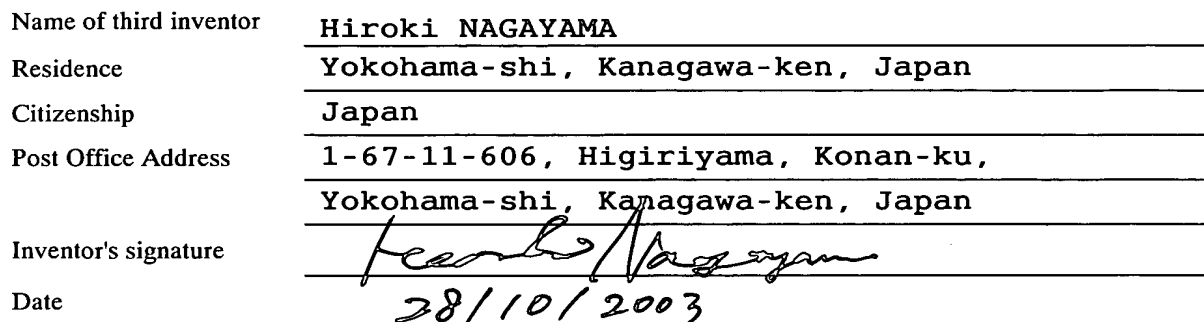 Name of third inventor Hiroki NAGAYAMA
Residence Yokohama-shi, Kanagawa-ken, Japan
Citizenship Japan
Post Office Address 1-67-11-606, Higiriyama, Konan-ku,
Yokohama-shi, Kanagawa-ken, Japan
Inventor's signature
Date 28/10/2003